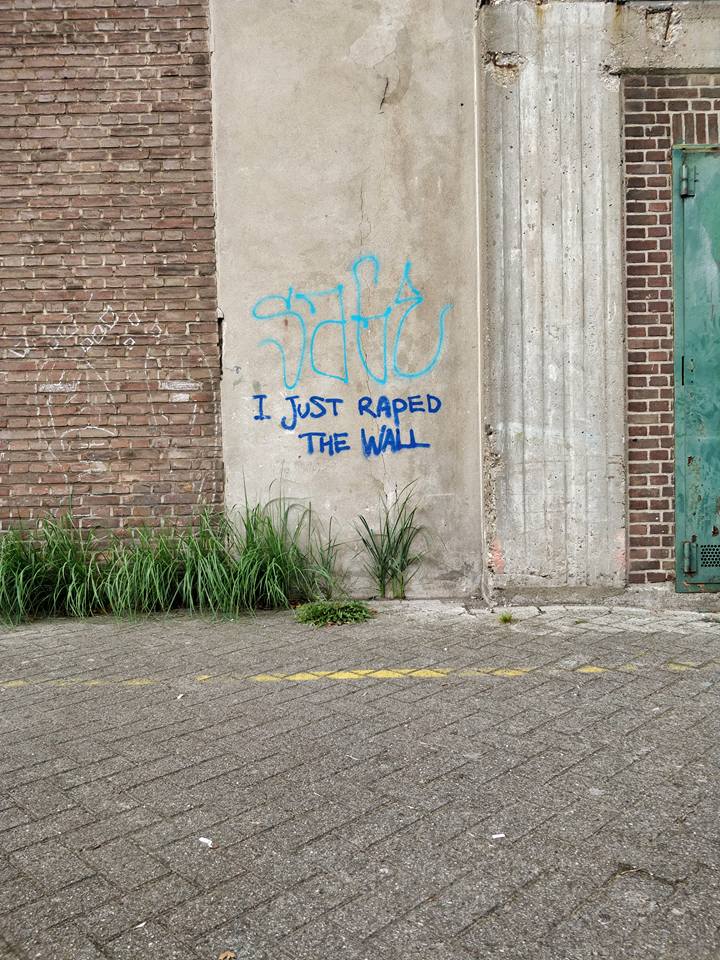 SAGE
I JUST RAPED
THE WALL